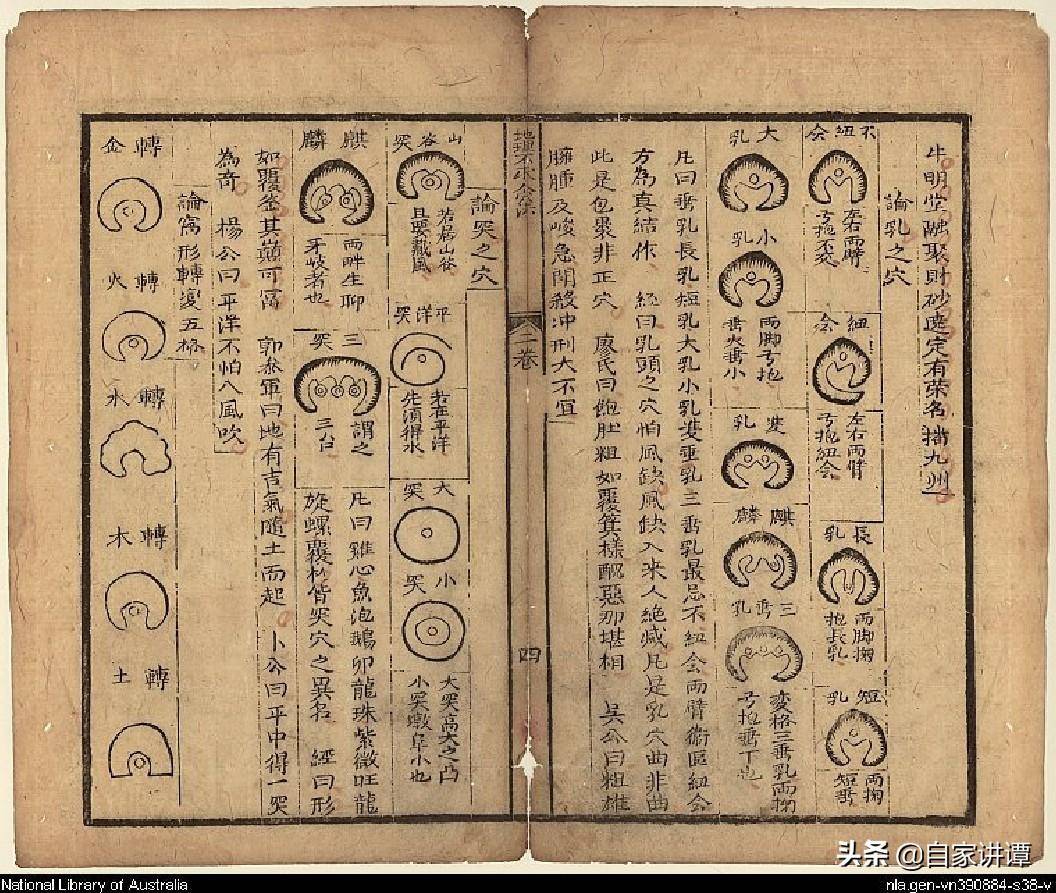 牛明堂融聚財砂遶定有榮名播九州
論乳之穴
不紐会
左右兩臂
弓抱不交
紐会
左右兩臂
弓抱紐会
長乳
兩脚掬
抱長乳
短乳
兩掬
短乳
大乳
小乳
兩脚弓抱
垂大垂小
䨇乳
麒麟
三垂乳
变格三垂乳兩掬
弓抱垂下也
凡曰垂乳長乳短乳大乳小乳䨇垂乳三垂乳最忌不紐会兩臂衛區紐会
方為真結作 經曰乳頭之穴怕風缺風缺入來人絕滅凡是乳穴曲非曲
此是包裹非正穴 廖氏曰飽肚粗如覆箕樣醜惡那堪相 吳公曰粗雄
臃腫及峻急開殺冲刑大不宜
二卷
四
論突之穴
山谷突
若居山谷
且要藏風
平洋突
若在平洋
先須得水
大突
小突
大突高大之凸
小突墩阜小也
麒麟
兩畔生聊
牙歧者也
三突
謂之
三台
凡曰雞心魚泡鵝卵龍珠紫微旺龍
旋螺覆杓皆突穴之異名 經曰形
如覆釜其巔可富 郭叅軍曰地有吉氣隨土而起 卜公曰平中得一突
為奇 楊公曰平洋不怕八風吹
論窩形轉变五格
轉金
轉火
轉水
轉木
轉土
National Library of Australia
nla.gen-vn390884-s38-v
头条 @自家讲谭